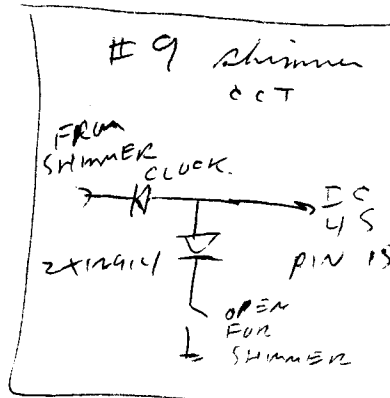 #9 shimmer
CCT
FROM
SHIMMER
CLOCK.
IC
45
PIN 15
2X1N914
OPEN
FOR
SHIMMER